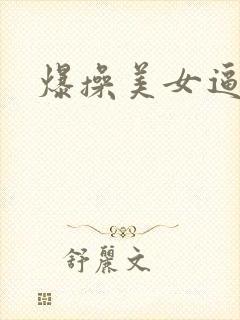 爆操美女逼
舒丽文